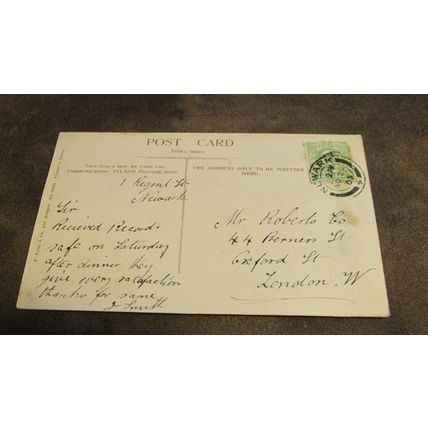 POST CARD
THIS SPACE MAY BE USED FOR
COMMUNICATION INLAND POSTAGE ONLY
THE ADDRESS ONLY TO BE WRITTEN
HERE
1 Regent St
Newark
Sir
Recieved Records
safe on Saturday
after dinner they
give every satisfaction
thanks for same
J Smith
Mr Roberts Co
44 Berners St
Oxford St
London. W
NEWARK